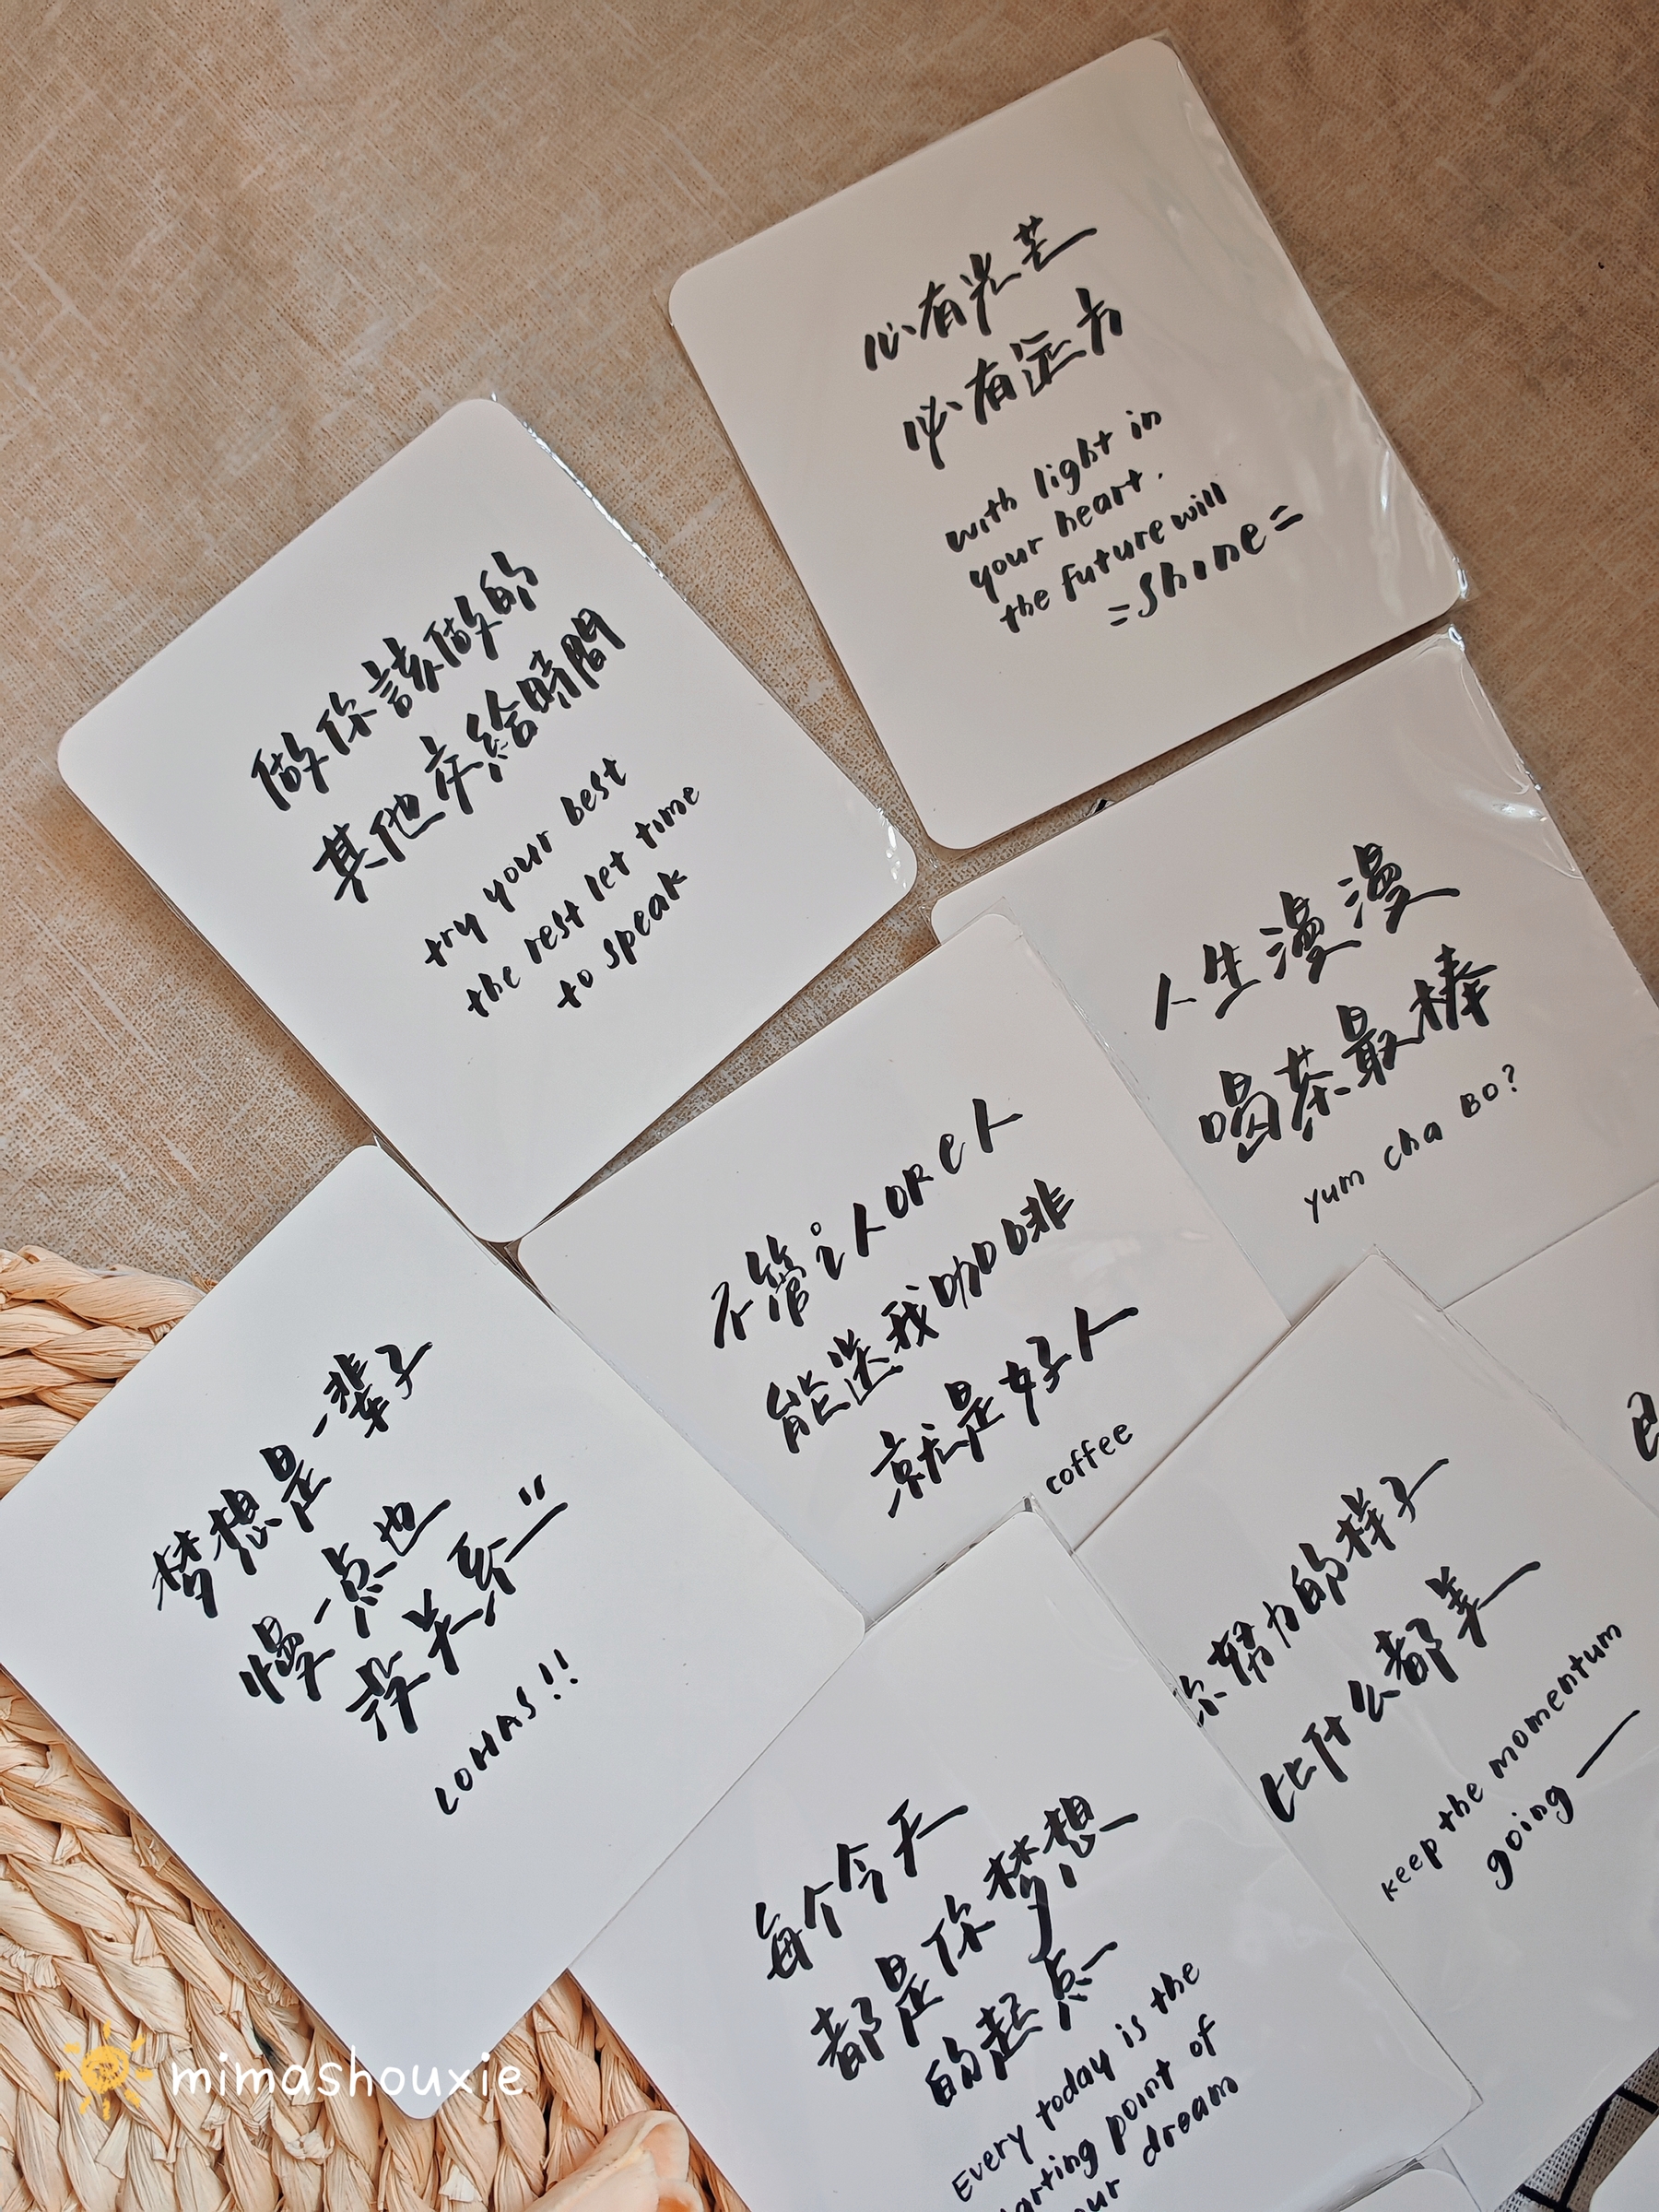 心有光芒
必有远方
with light in
your heart.
the future will
=Shine=
做你該做的
其他交給時間
try your best
the rest let time
to speak
人生漫漫
喝茶最棒
yum cha BO?
不管i人OR e人
能送我咖啡
就是好人
coffee
梦想是一辈子
慢一点也
没关系"
LOHAS!!
你努力的样子
比什么都美
keep the momentum
going
每个今天
都是你梦想
的起点
Every today is the
arting point of
our dream
mimashouxie